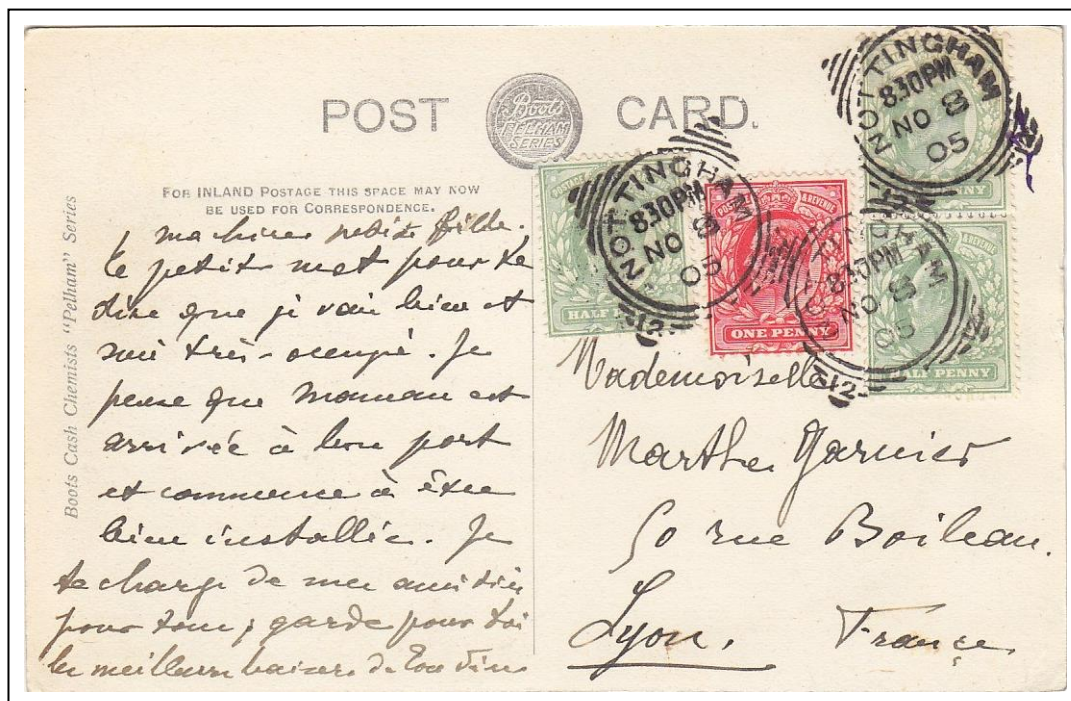 POST CARD.
Boots
PELHAM
SERIES
FOR INLAND POSTAGE THIS SPACE MAY NOW
BE USED FOR CORRESPONDENCE.
Boots Cash Chemists "Pelham" Series
ma chère petite fille.
Ce petit mot pour te
dire que je vais bien et
suis très-occupé. Je
pense que maman est
arrivée à bon port
et commence à être
bien installée. Je
te charge de mes amitiés
pour tous, garde pour toi
les meilleurs baisers de ton
NOTTINGHAM
8.30PM
NO 8
05
512
HALF
NOTTINGHAM
8.30PM
NO 8
05
512
POSTAGE & REVENUE
ONE PENNY
NOTTINGHAM
8.30PM
NO 8
05
512
PENNY
HALF PENNY
Mademoiselle
Marthe Garnier
50 rue Boileau.
Lyon. France